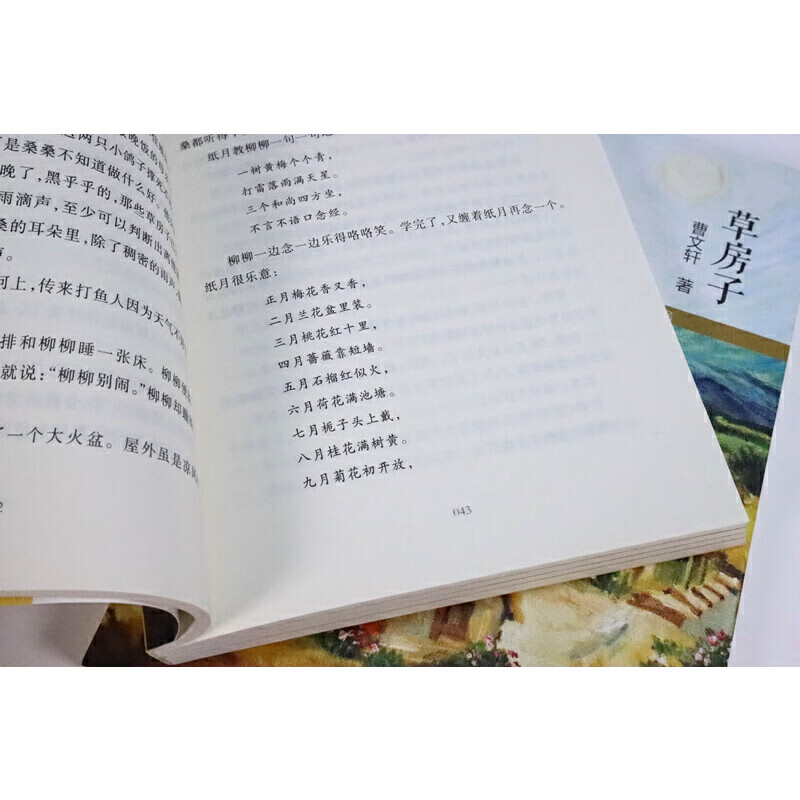 晚饭的
这两只小鸽子撑死
了是桑桑不知道做什么好。
晚了，黑乎乎的，那些草房子
雨滴声，至少可以判断出
桑的耳朵里，除了稠密的雨声
声。
河上，传来打鱼人因为天气不
排和柳柳睡一张床。柳柳
就说：“柳柳别闹。”柳柳却
了一个大火盆。屋外虽是
2
桑都听得
纸月教柳柳一句一句
一树黄梅个个青，
打雷落雨满天星。
三个和尚四方坐，
不言不语口念经。
柳柳一边念一边乐得咯咯笑。学完了，又缠着纸月再念一个。
纸月很乐意：
正月梅花香又香，
二月兰花盆里装。
三月桃花红十里，
四月蔷薇靠短墙。
五月石榴红似火，
六月荷花满池塘。
七月栀子头上戴，
八月桂花满树黄。
九月菊花初开放，
043
草房子
曹文轩 著